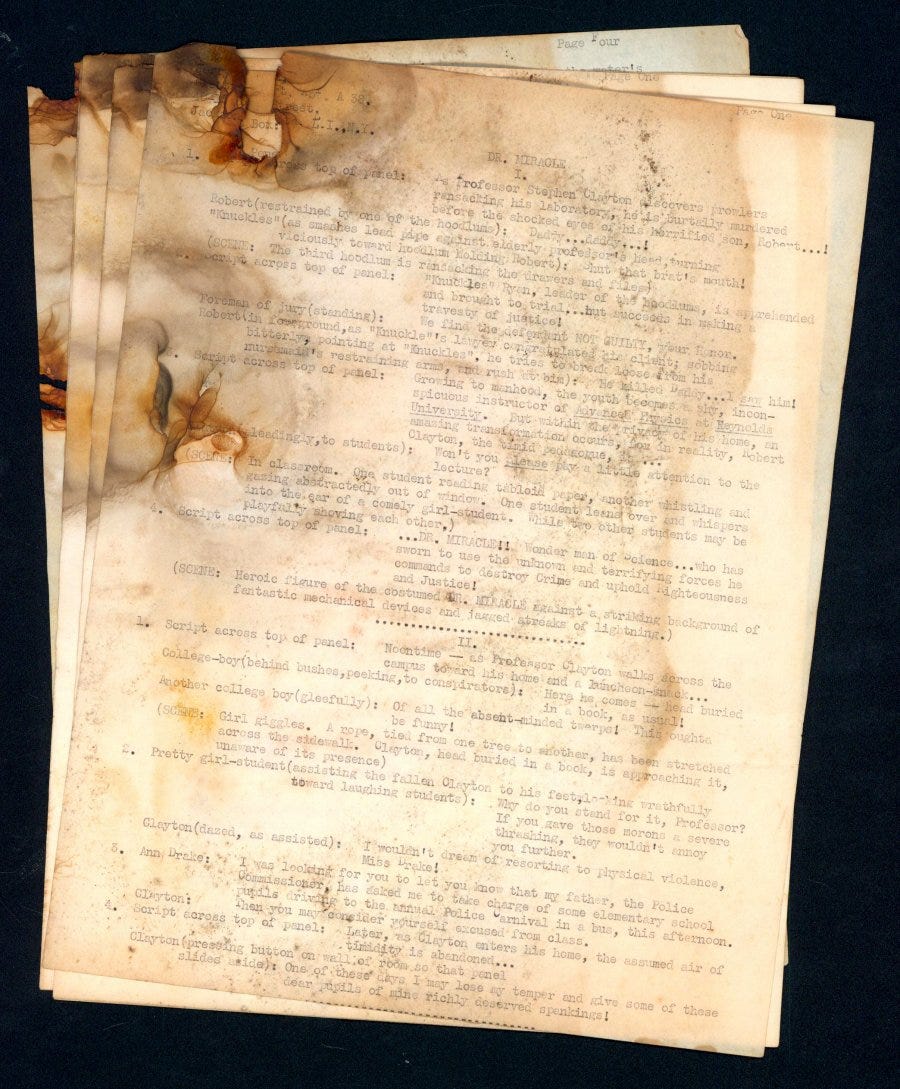 Page Four
the water's
Page One
Page One
A 38.
Box: L.I.,N.Y.
DR. MIRACLE
I.
1. across top of panel: As Professor Stephen Clayton discovers prowlers
ransacking his laboratory, he is burtally murdered
before the shocked eyes of his horrified son, Robert...!
Robert(restrained by one of the hoodlums): Daddy...daddy...!
"Knuckles"(as smashes lead pipe against elderly professor's head,turning
viciously toward hoodlum holding Robert): Shut that brat's mouth!
(SCENE: The third hoodlum is ransacking the drawers and files)
Script across top of panel: "Knuckles" Ryan, leader of the hoodlums, is apprehended
and brought to trial...but succeeds in making a
travesty of justice!
Foreman of jury(standing): We find the defendant NOT GUILTY, your honor.
Robert(in foreground,as "Knuckle"'s lawyer congratulated his client; sobbing
bitterly, pointing at "Knuckles", he tries to break loose from his
nursemaid's restraining arms, and rush at him): He killed Daddy...I saw him!
Script across top of panel: Growing to manhood, the youth becomes a shy, incon-
spicuous instructor of Advanced Physics at Reynolds
University. But within the privacy of his home, an
amazing transformation occurs, for in reality, Robert
Clayton, the timid pedagogue, is...
leadingly,to students): Won't you please pay a little attention to the
lecture?
(SCENE: In classroom. One student reading tabloid paper, another whistling and
gazing abstractedly out of window. One student leans over and whispers
into the ear of a comely girl-student. While two other students may be
playfully shoving each other.)
4. Script across top of panel: ...DR. MIRACLE!! Wonder man of Science...who has
sworn to use the unknown and terrifying forces he
commands to destroy Crime and uphold Righteousness
and Justice!
(SCENE: Heroic figure of the costumed DR. MIRACLE against a striking background of
fantastic mechanical devices and jagged streaks of lightning.)
II.
1. Script across top of panel: Noontime -- as Professor Clayton walks across the
campus toward his home and a luncheon-snack...
College-boy(behind bushes,peeking,to conspirators): Here he comes -- head buried
in a book, as usual!
Another college boy(gleefully): Of all the absent-minded twerps! This oughta
be funny!
(SCENE: Girl giggles. A rope, tied from one tree to another, has been stretched
across the sidewalk. Clayton, head buried in a book, is approaching it,
unaware of its presence)
2. Pretty girl-student(assisting the fallen Clayton to his feet,looking wrathfully
toward laughing students): Why do you stand for it, Professor?
If you gave those morons a severe
thrashing, they wouldn't annoy
you further.
Clayton(dazed, as assisted): I wouldn't dream of resorting to physical violence,
Miss Drake!
3. Ann Drake: I was looking for you to let you know that my father, the Police
Commissioner, has asked me to take charge of some elementary school
pupils driving to the annual Police Carnival in a bus, this afternoon.
Clayton: Then you may consider yourself excused from class.
4. Script across top of panel: Later, as Clayton enters his home, the assumed air of
timidity is abandoned...
Clayton(pressing button on wall of room so that panel
slides aside): One of these days I may lose my temper and give some of these
dear pupils of mine richly deserved spankings!